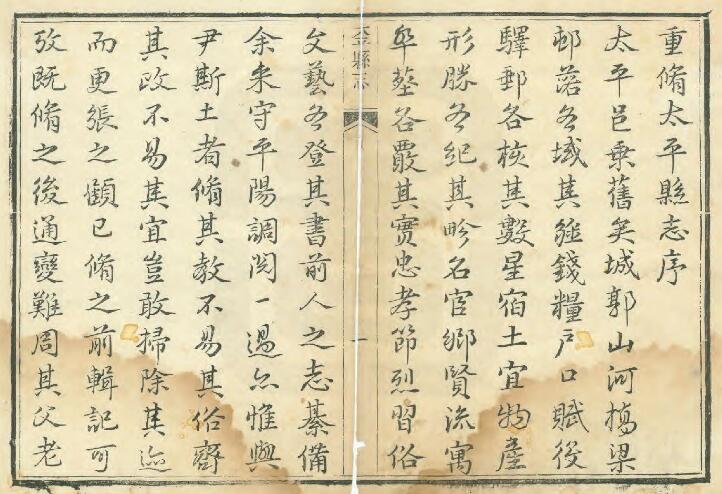 重脩太平縣志序
太平邑乗舊矣城郭山河橋梁
邨落各域其疆錢糧戶口賦役
驛郵各核其數星宿土宜物產
形勝各紀其畛名宦鄉賢流寓
墓各覈其實忠孝節烈習俗
縣志
一
文藝各登其書前人之志綦備
余来守平陽調閱一過亦惟與
尹斯土者脩其教不易其俗齊
其政不易其宜豈敢掃除其迹
而更張之顧已脩之前輯記可
攷既脩之後通變難周其父老